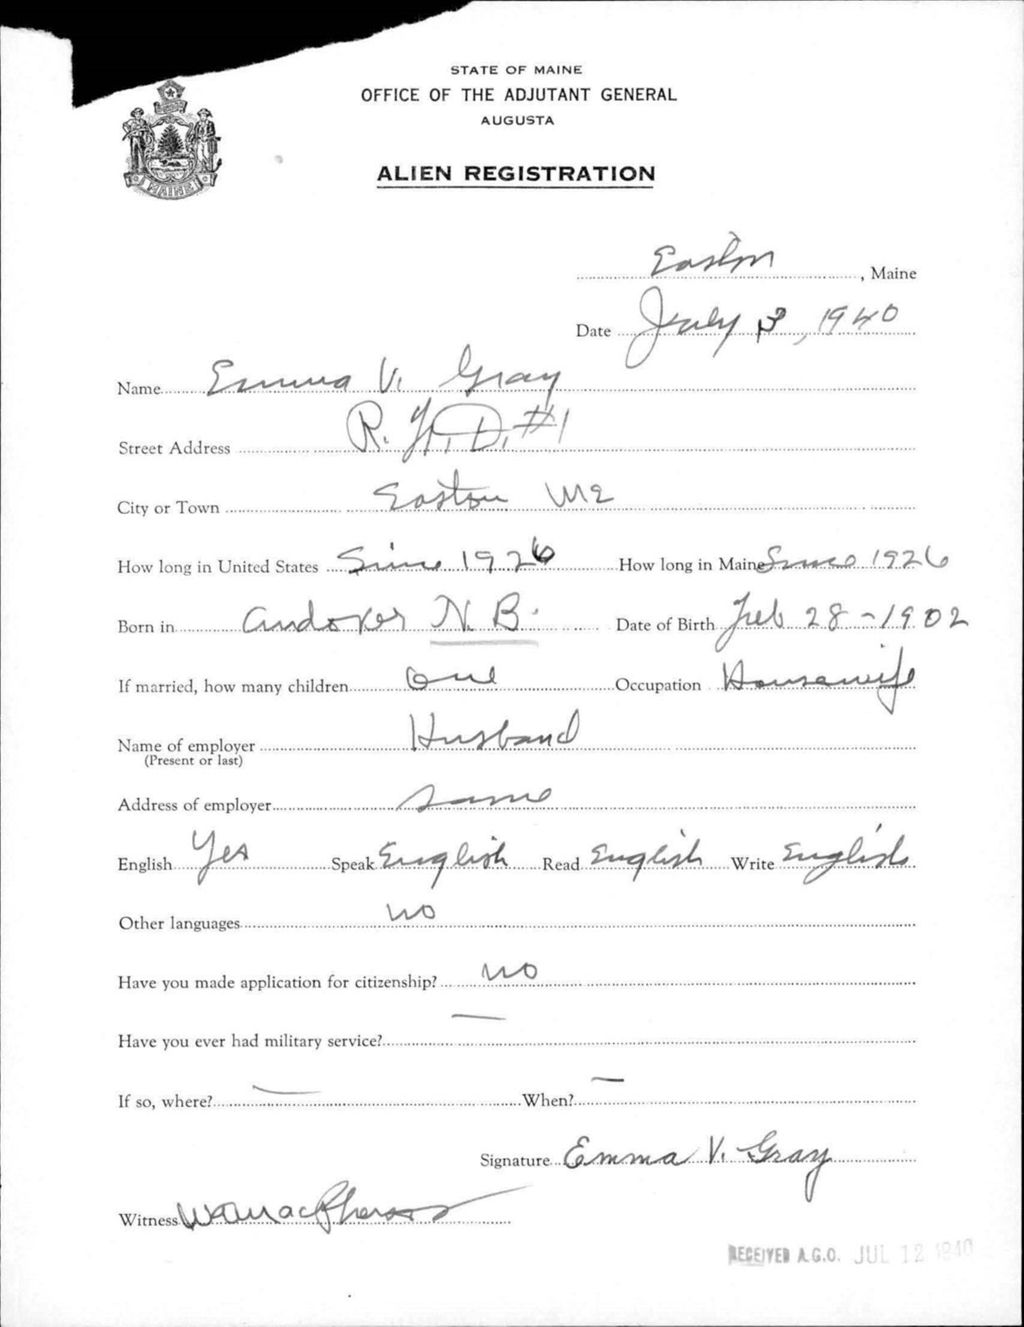 STATE OF MAINE
OFFICE OF THE ADJUTANT GENERAL
AUGUSTA
ALIEN REGISTRATION
MAINE
Easton, Maine
Date July 3, 1940
Name Emma V. Gray
Street Address R.F.D. #1
City or Town Easton Me
How long in United States Since 1926 How long in Maine Since 1926
Born in Andover N.B. Date of Birth Feb 28-1902
If married, how many children One Occupation Housewife
Name of employer Husband
(Present or last)
Address of employer Same
English Yes Speak English Read English Write English
Other languages no
Have you made application for citizenship? no
Have you ever had military service? —
If so, where? — When? —
Signature Emma V. Gray
Witness
RECEIVED A.G.O. JUL 12 1940